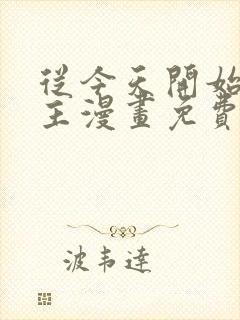 從今天開始
主漫畫免費
波韦達